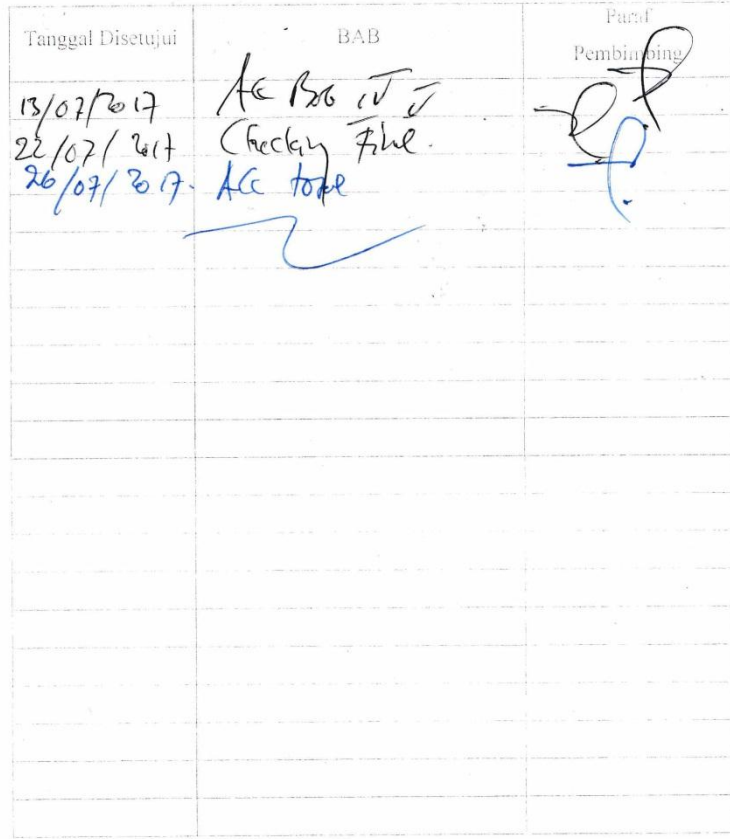 Tanggal Disetujui BAB Paraf Pembimbing
13/07/2017 Acc Bab IV V
22/07/2017 Checking Final.
26/07/2017. Acc total